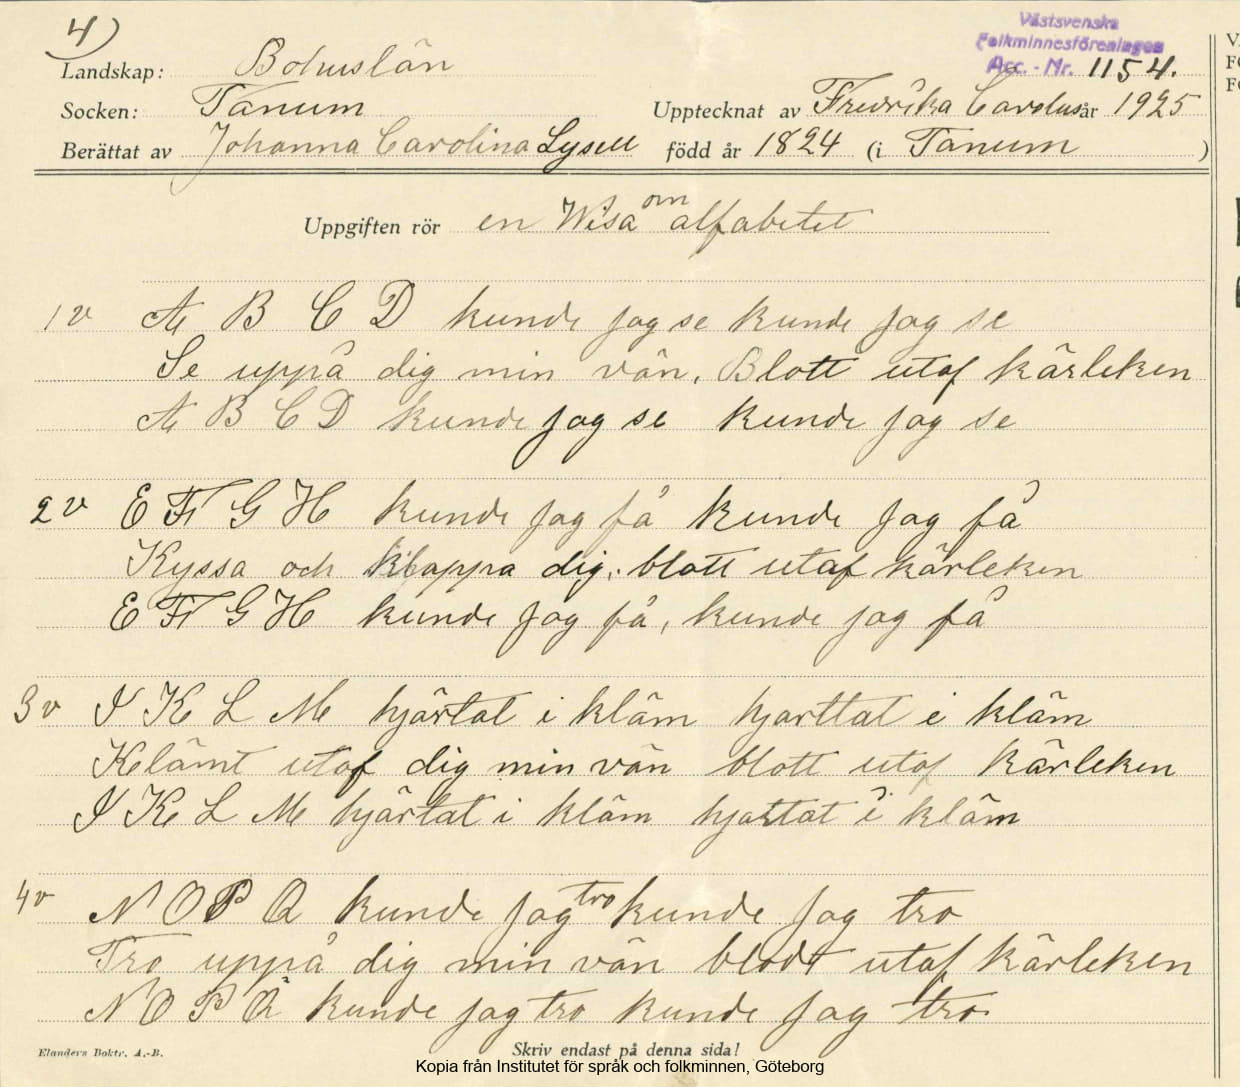 4)
Västsvenska
Folkminnesföreningen
Acc. - Nr. 1154.
Landskap: Bohuslän
Socken: Tanum
Upptecknat av Fredrika Carolus år 1925
Berättat av Johanna Carolina Lysell född år 1824 (i Tanum )
Uppgiften rör en Wisa om alfabetet
1 v A B C D kunde jag se kunde jag se
Se uppå dig min vän, Blott utaf kärleken
A B C D kunde jag se kunde jag se
2 v E F G H kunde jag få kunde jag få
Kyssa och klappa dig, blott utaf kärleken
E F G H kunde jag få, kunde jag få
3 v I K L M hjärtat i kläm hjarttat i kläm
Klämt utaf dig min vän blott utaf kärleken
I K L M hjärtat i kläm hjartat i kläm
4 v N O P Q kunde jag tro kunde jag tro
Tro uppå dig min vän blodt utaf kärleken
N O P Q kunde jag tro kunde jag tro.
Elanders Boktr. A.-B.
Skriv endast på denna sida!
Kopia från Institutet för språk och folkminnen, Göteborg